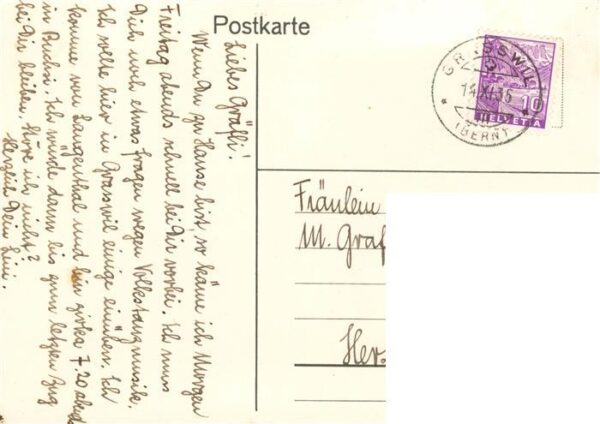 Postkarte
Liebes Gräfli!
Wenn Du zu Hause bist, so käme ich Morgen
Freitag abends schnell bei Dir vorbei. Ich muss
Dich noch etwas fragen wegen Volkstanzmusik.
Ich sollte hier in Grasswil einige einüben. Ich
komme von Langenthal und bin zirka 7.20 abends
in Buchsi. Ich würde dann bis zum letzten Zug
bei Dir bleiben. Störe ich nicht?
Herzlich Dein
GRASSWIL
14.XI.35
(BERN)
10
HELVETIA
Fräulein
M. Graf
Her